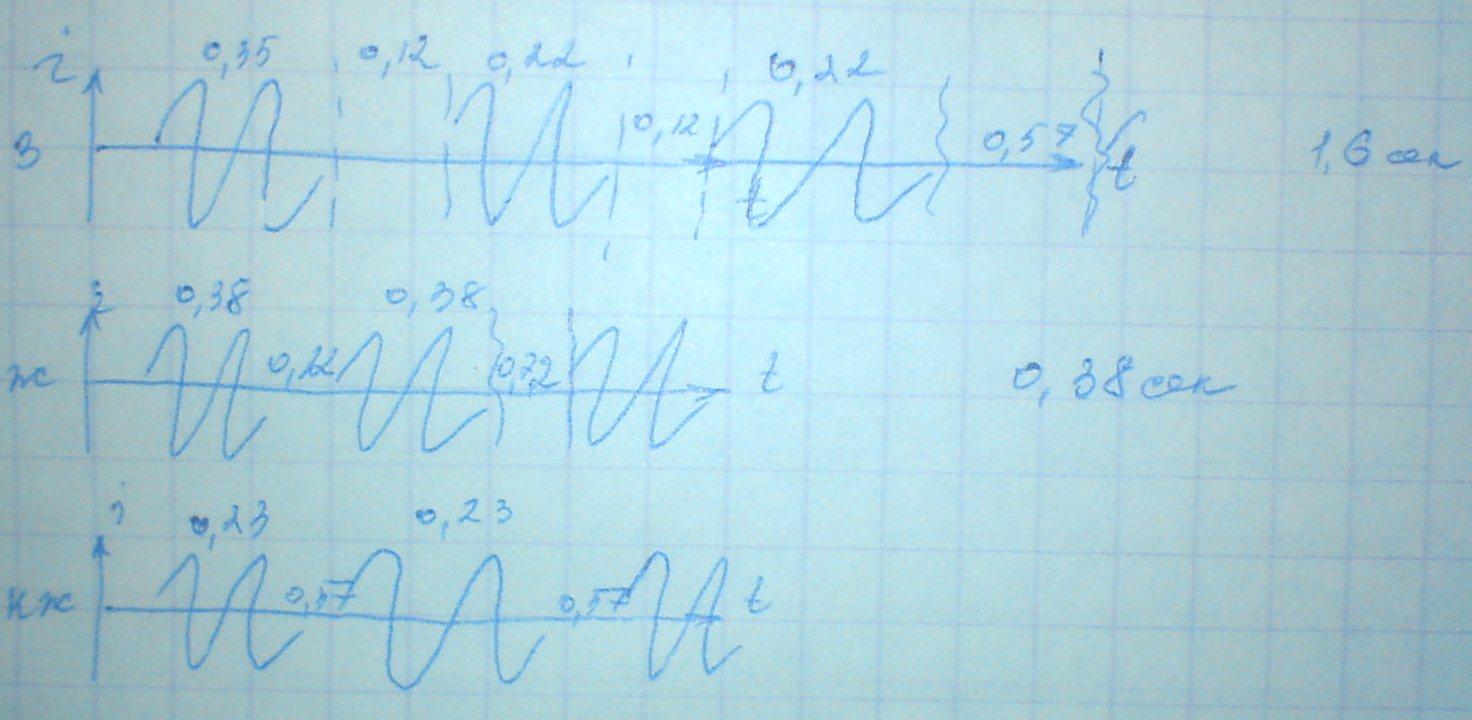 i 0,35 0,12 0,22 0,22
З 0,12 0,57 t 1,6 сек
t
i 0,38 0,38
Ж 0,22 0,72 t 0,38 сек
i 0,23 0,23
КЖ 0,57 0,57 t